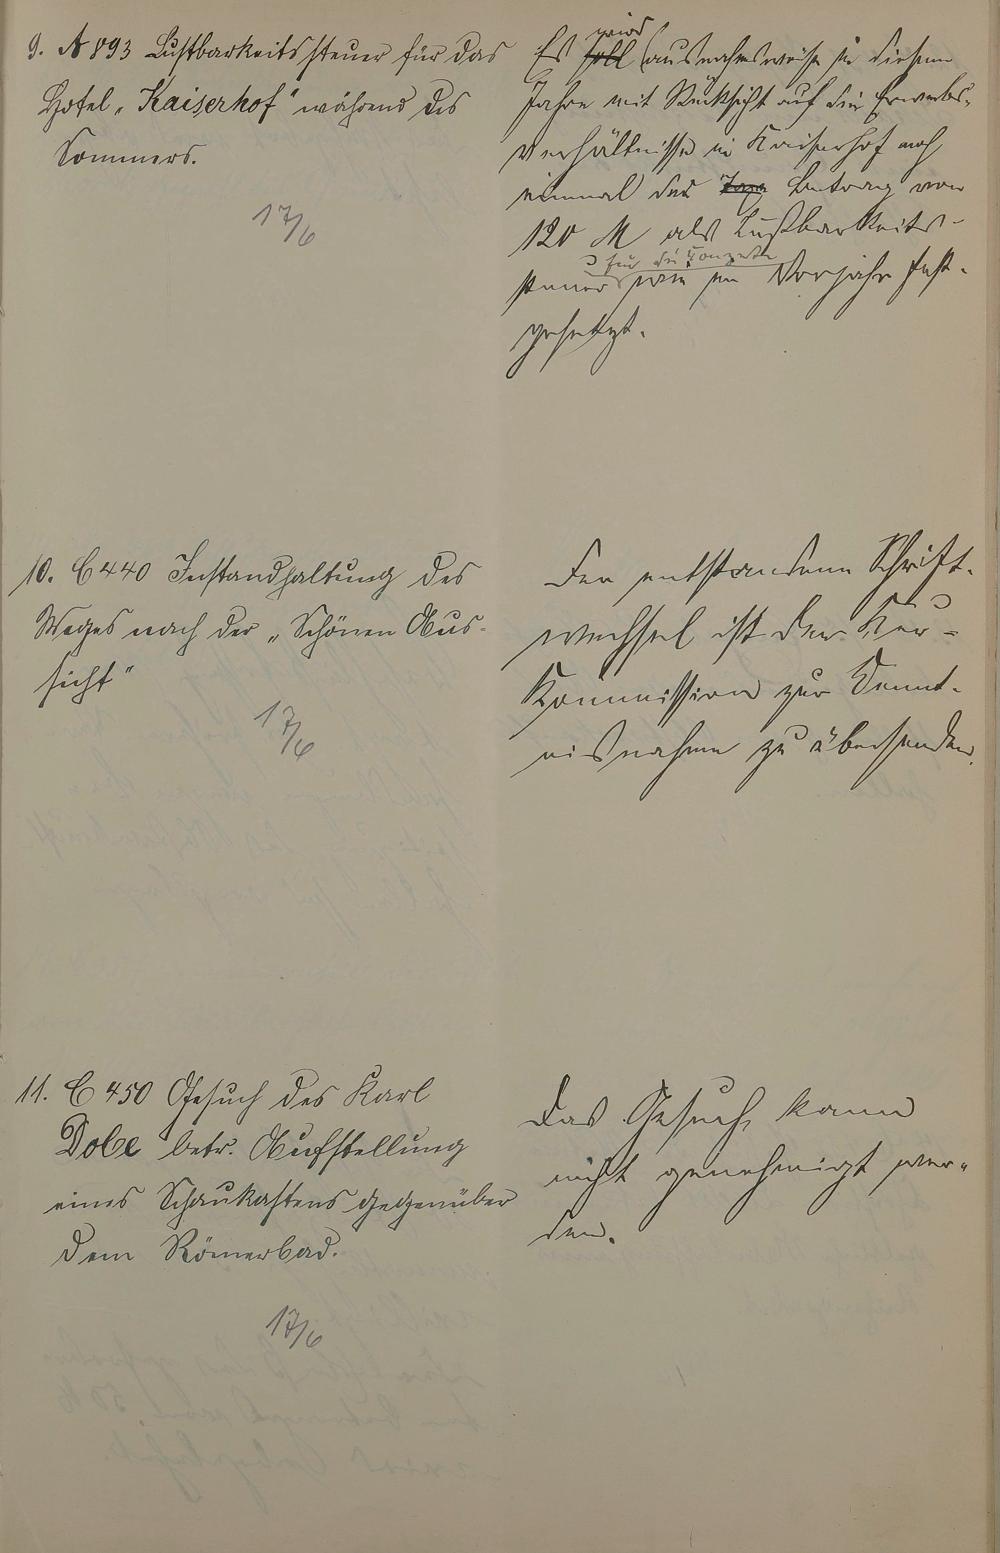 9. A 893 Lustbarkeitssteuer für das
Hotel „Kaiserhof" während des
Sommers.
17/6
wird
Es soll ausnahmsweise in diesem
Jahre mit Rücksicht auf die Erwerbs-
verhältnisse im Kaiserhof noch
einmal der Betrag von
120 M als Lustbarkeits-
für die Konzerte
steuer wie im Vorjahr fest-
gesetzt.
10. C 440 Instandhaltung des
Weges nach der „Schönen Aus-
sicht"
17/6
Der entstandene Schrift-
wechsel ist der Kur-
Kommission zur Kennt-
nisnahme zu übersenden.
11. C 450 Gesuch des Karl
Dobe betr. Aufstellung
eines Schaukastens gegenüber
dem Römerbad.
17/6
Das Gesuch kann
nicht genehmigt wer-
den.